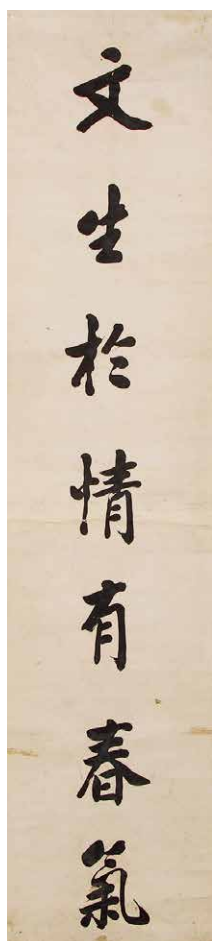 文生於情有春氣